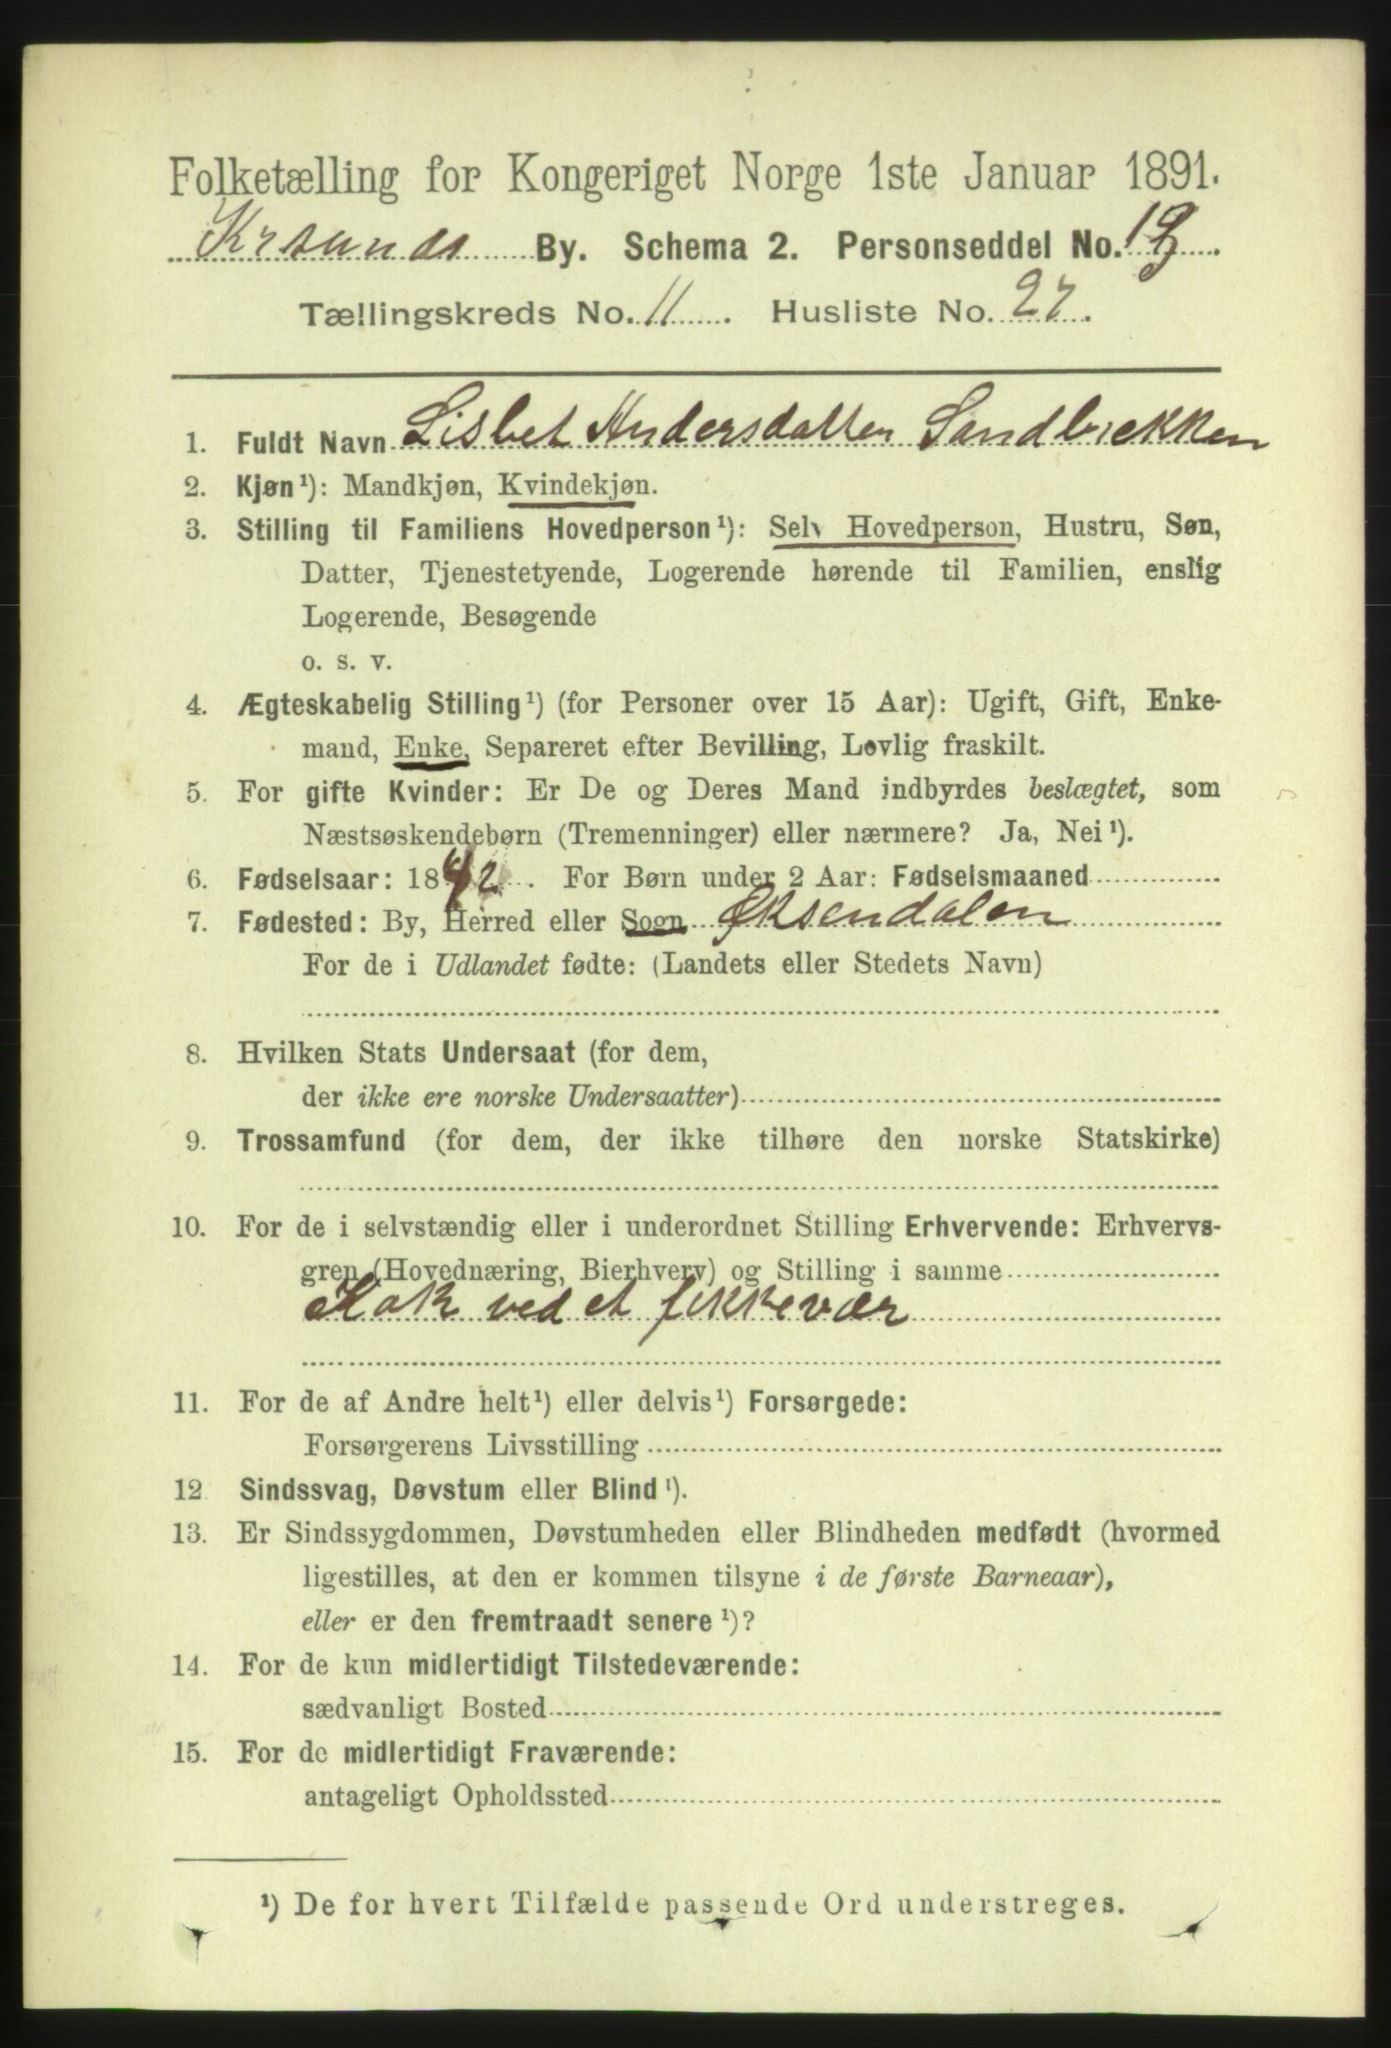 Folketælling for Kongeriget Norge 1ste Januar 1891.
Krsunds By. Schema 2. Personseddel No.
Tællingskreds No. 11. Husliste No. 27.
1. Fuldt Navn Lisbet Andersdatter Sandbrekken
2. Kjøn¹): Mandkjøn, Kvindekjøn.
3. Stilling til Familiens Hovedperson¹): Selv Hovedperson, Hustru, Søn,
Datter, Tjenestetyende, Logerende hørende til Familien, enslig
Logerende, Besøgende
o. s. v.
4. Ægteskabelig Stilling¹) (for Personer over 15 Aar): Ugift, Gift, Enke-
mand, Enke, Separeret efter Bevilling, Lovlig fraskilt.
5. For gifte Kvinder: Er De og Deres Mand indbyrdes beslægtet, som
Næstsøskendebørn (Tremenninger) eller nærmere? Ja, Nei¹).
6. Fødselsaar: 1842. For Børn under 2 Aar: Fødselsmaaned
7. Fødested: By, Herred eller Sogn Øksendalen
For de i Udlandet fødte: (Landets eller Stedets Navn)
8. Hvilken Stats Undersaat (for dem,
der ikke ere norske Undersaatter)
9. Trossamfund (for dem, der ikke tilhøre den norske Statskirke)
10. For de i selvstændig eller i underordnet Stilling Erhvervende: Erhvervs-
gren (Hovednæring, Bierhverv) og Stilling i samme
Kok ved et fikkevær
11. For de af Andre helt¹) eller delvis¹) Forsørgede:
Forsørgerens Livsstilling
12 Sindssvag, Døvstum eller Blind¹).
13. Er Sindssygdommen, Døvstumheden eller Blindheden medfødt (hvormed
ligestilles, at den er kommen tilsyne i de første Barneaar),
eller er den fremtraadt senere¹)?
14. For de kun midlertidigt Tilstedeværende:
sædvanligt Bosted
15. For de midlertidigt Fraværende:
antageligt Opholdssted
¹) De for hvert Tilfælde passende Ord understreges.